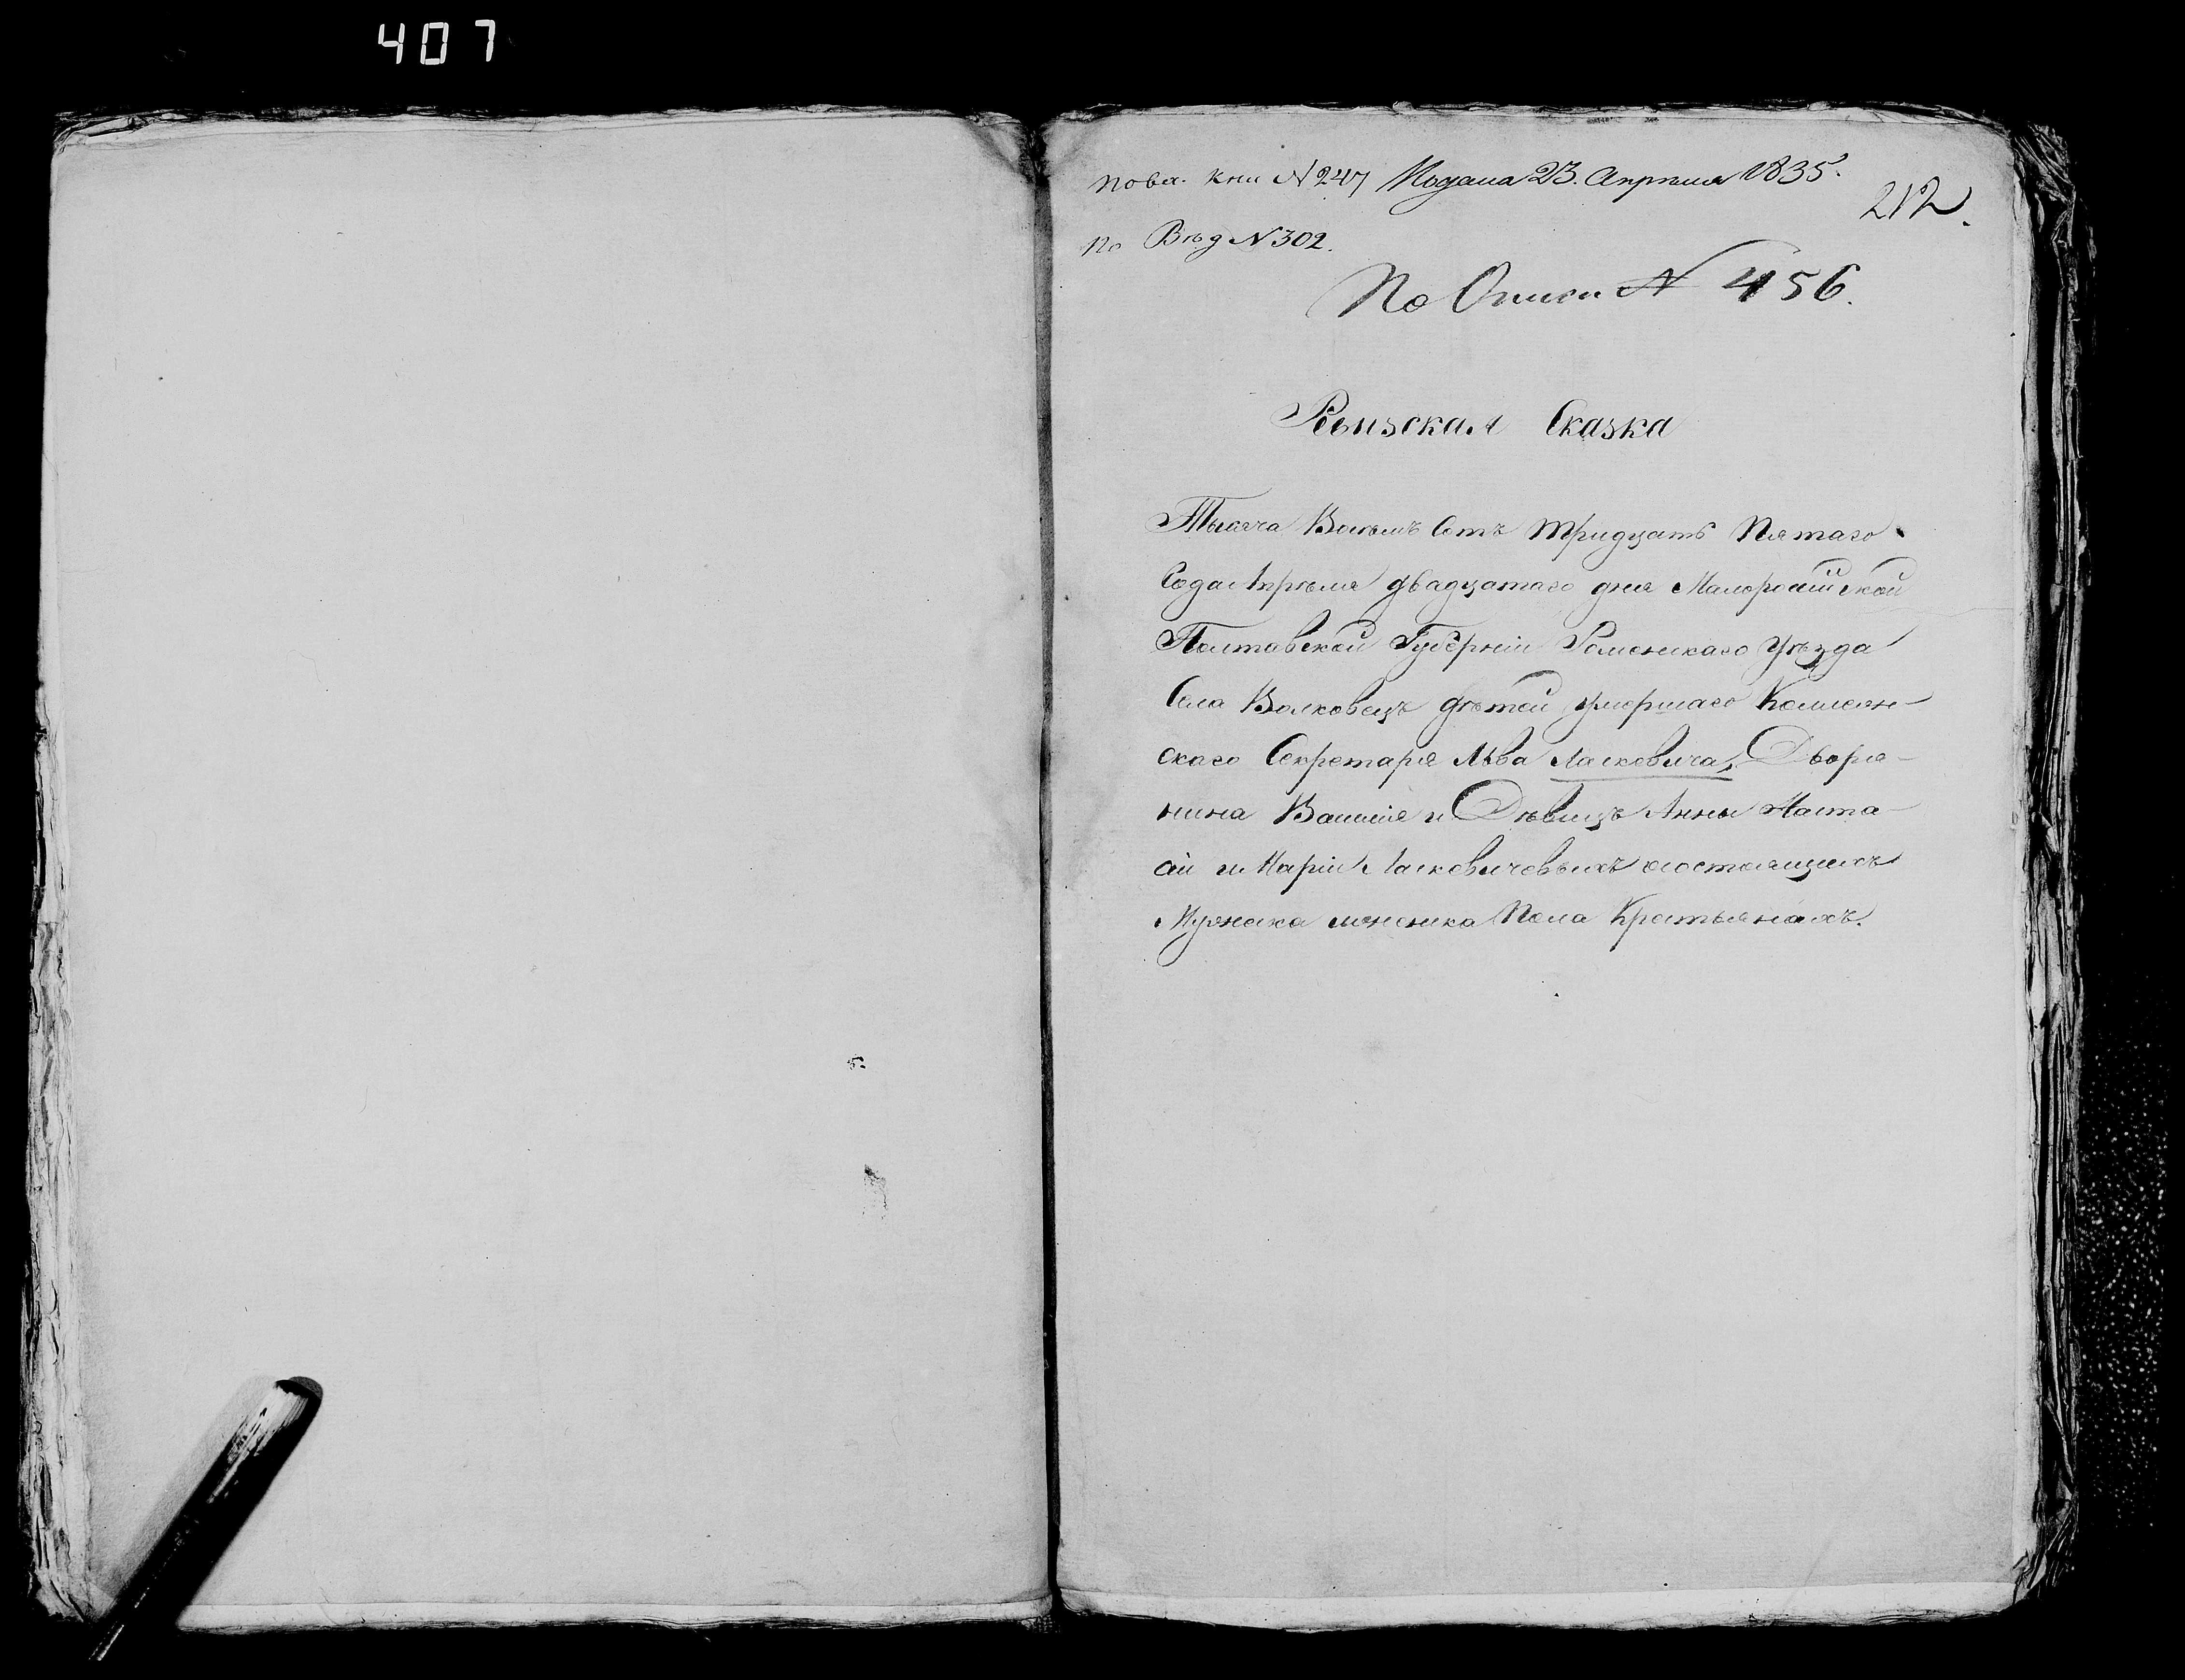 407
пова. кни № 247 Подана 23. Апреля 1835.
212.
По Вѣд № 302.
По Описи № 456.
Ревизская Сказка
Тысяча Восемь Сотъ тридцать Пятаго
Года Апрѣля двадцатаго дня Малоросiйской
Полтавской Губернiи Роменскаго уѣзда
Села Волковецъ дѣтей умершаго Коллеж-
скаго Секретаря Льва Ласкевича, Дворя-
нина Василiя и Дѣвицъ Анны Наста-
сiи и Марiи Ласкевичевыхъ состоящихъ
Мужеска женска Пола Крестьянахъ.